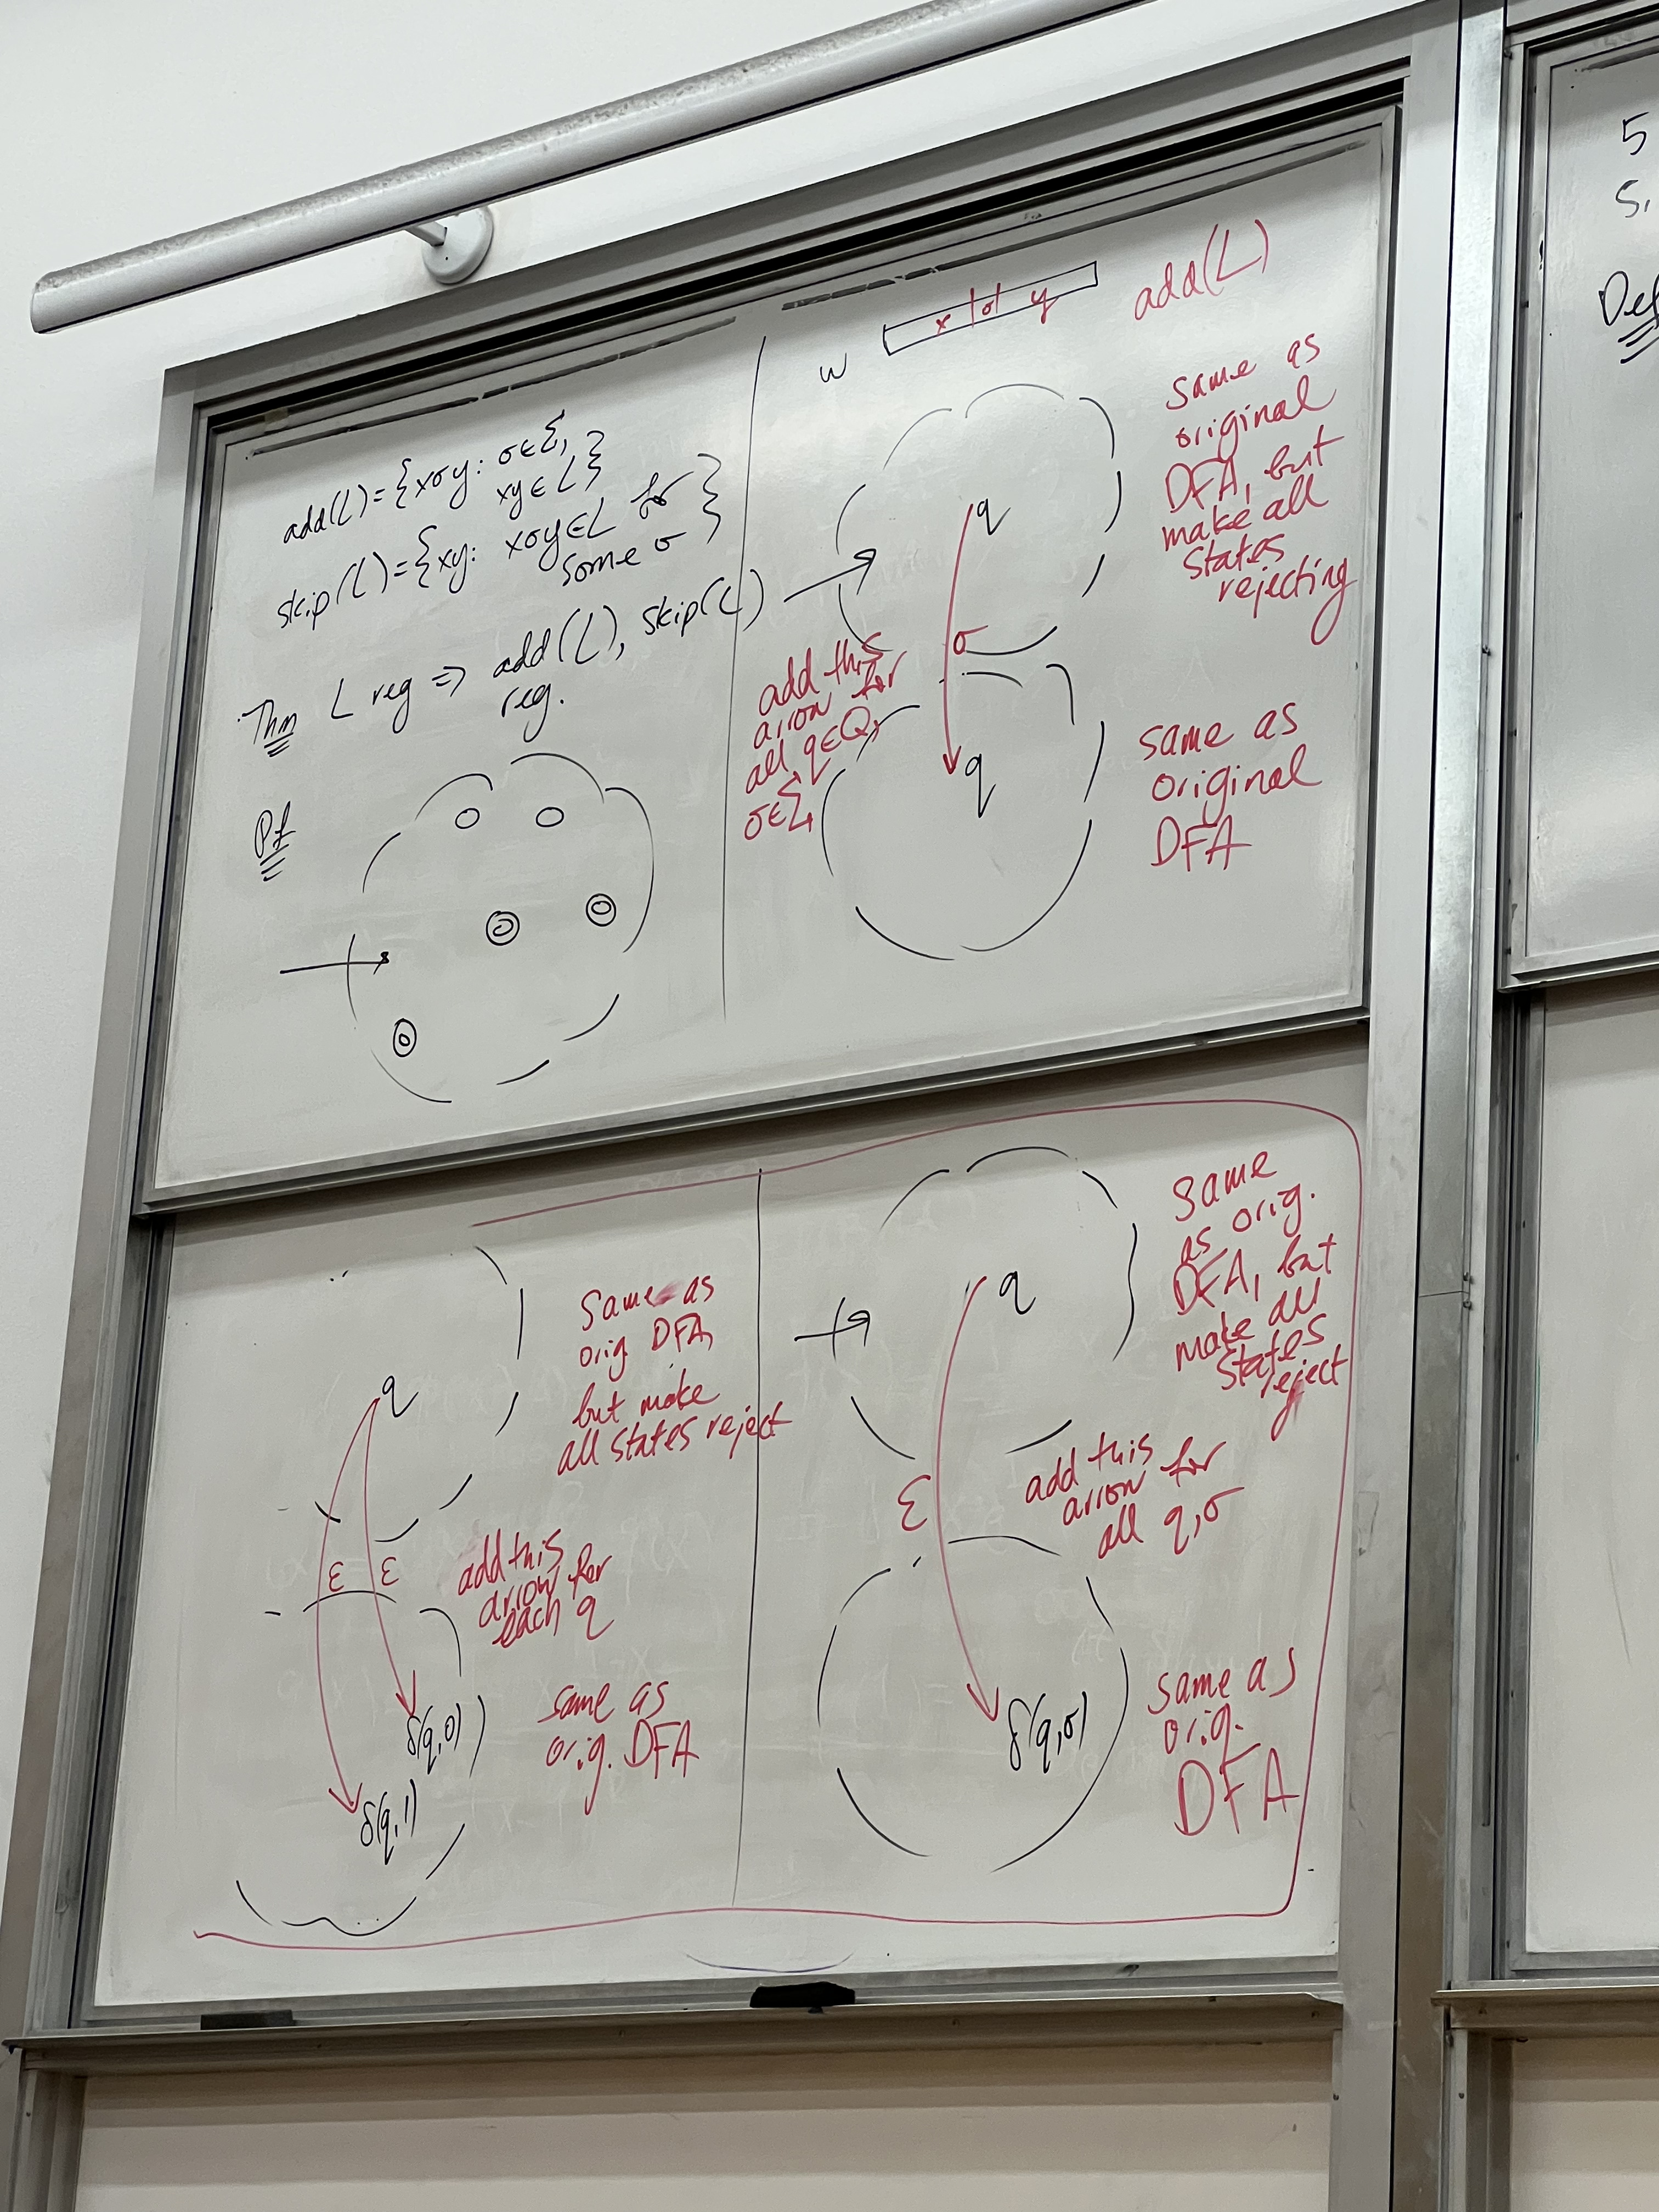 add(L)={xσy: σ∈Σ,
xy∈L}
skip(L)={xy: xσy∈L for
some σ}
Thm L reg ⇒ add(L), skip(L)
reg.
Pf
w
x |σ| y
add(L)
same as
original
DFA, but
make all
states
rejecting
q
σ
add this
arrow for
all q∈Q,
σ∈Σ
q
same as
original
DFA
q
same as
orig. DFA,
but make
all states reject
ε ε
add this
arrow for
each q
δ(q,0)
δ(q,1)
same as
orig. DFA
q
same
as orig.
DFA, but
make all
states
reject
ε
add this
arrow for
all q,σ
δ(q,σ)
same as
orig.
DFA
5
S,
Def